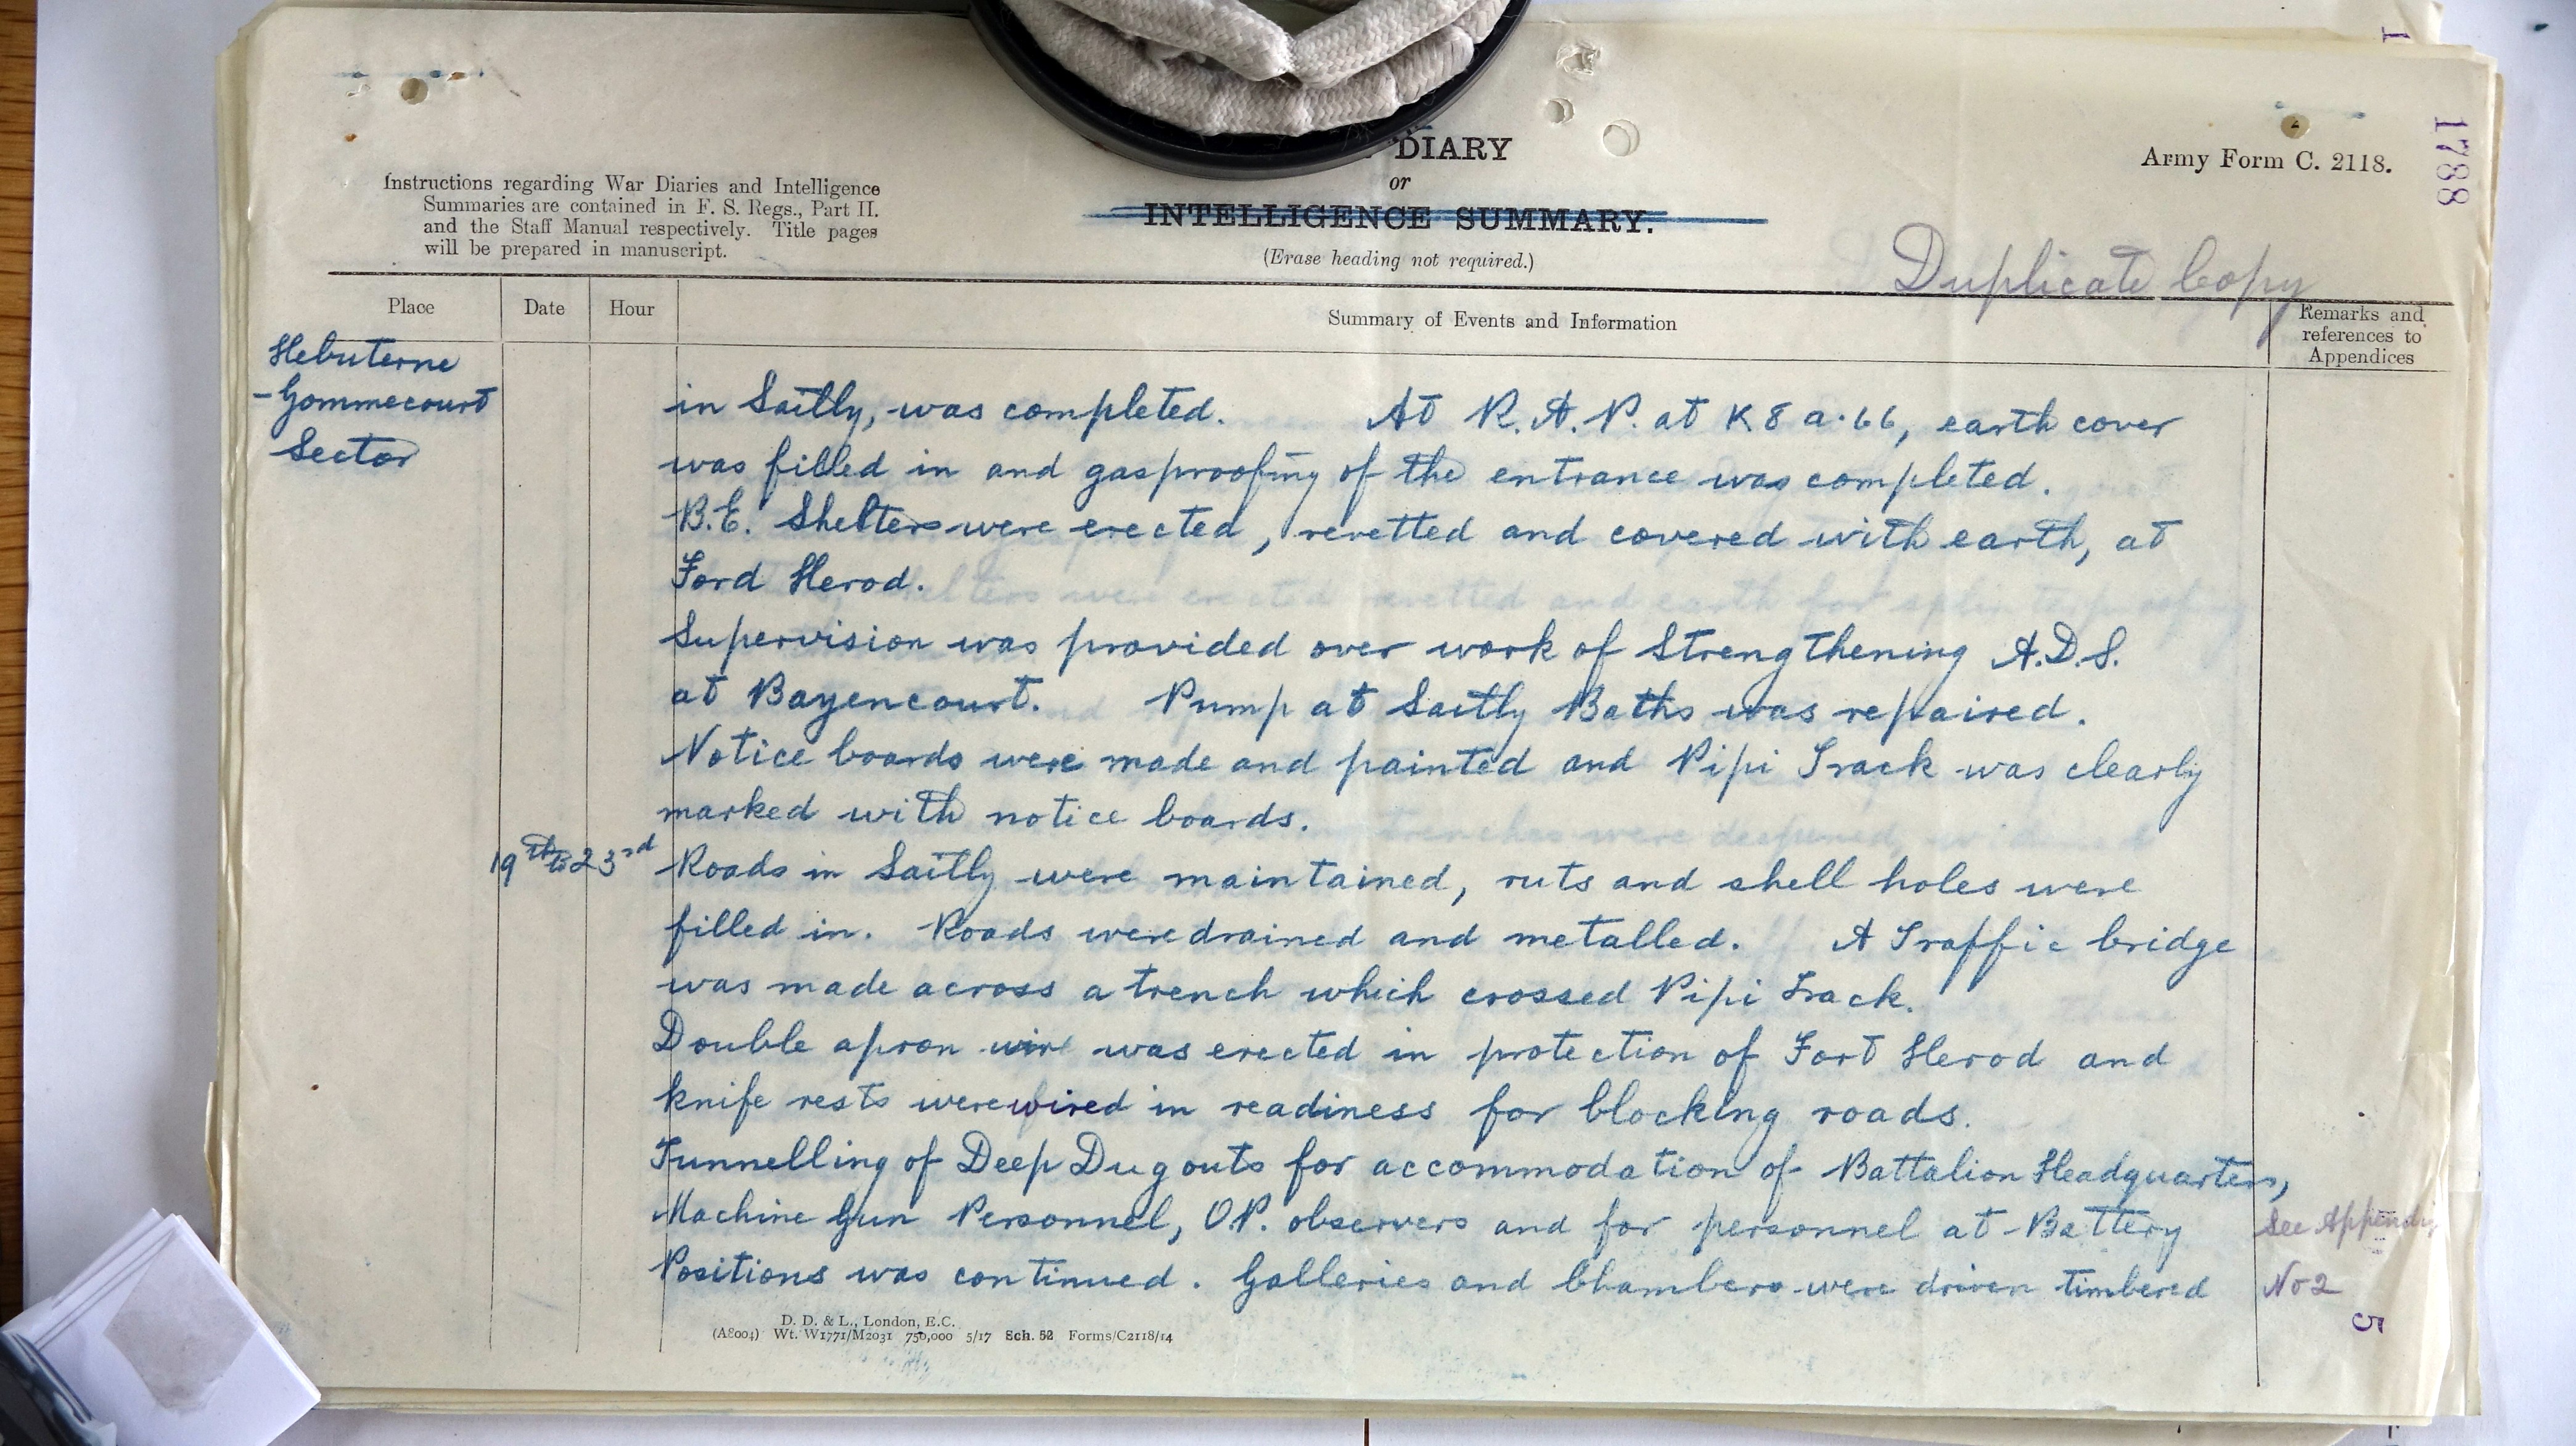 1788
DIARY
or
INTELLIGENCE SUMMARY.
(Erase heading not required.)
Army Form C. 2118.
Instructions regarding War Diaries and Intelligence
Summaries are contained in F. S. Regs., Part II.
and the Staff Manual respectively. Title pages
will be prepared in manuscript.
Duplicate Copy
Place Date Hour Summary of Events and Information Remarks and references to Appendices
Hebuterne
-Gommecourt
Sector
in Sailly, was completed. At R.A.P. at K 8 a.66, earth cover
was filled in and gasproofing of the entrance was completed.
B.E. Shelters were erected, revetted and covered with earth, at
Ford Herod.
Supervision was provided over work of Strengthening A.D.S.
at Bayencourt. Pump at Sailly Baths was repaired.
Notice boards were made and painted and Pipi Track was clearly
marked with notice boards.
19th to 23rd Roads in Sailly were maintained, ruts and shell holes were
filled in. Roads were drained and metalled. A Traffic bridge
was made across a trench which crossed Pipi Track.
Double apron wire was erected in protection of Fort Herod and
knife rests were wired in readiness for blocking roads.
Tunnelling of Deep Dug outs for accommodation of Battalion Headquarters,
Machine Gun Personnel, O.P. observers and for personnel at Battery See Appendix
Positions was continued. Galleries and Chambers were driven timbered No 2
5
D. D. & L., London, E.C.
(A8004) Wt. W1771/M2031 750,000 5/17 Sch. 52 Forms/C2118/14